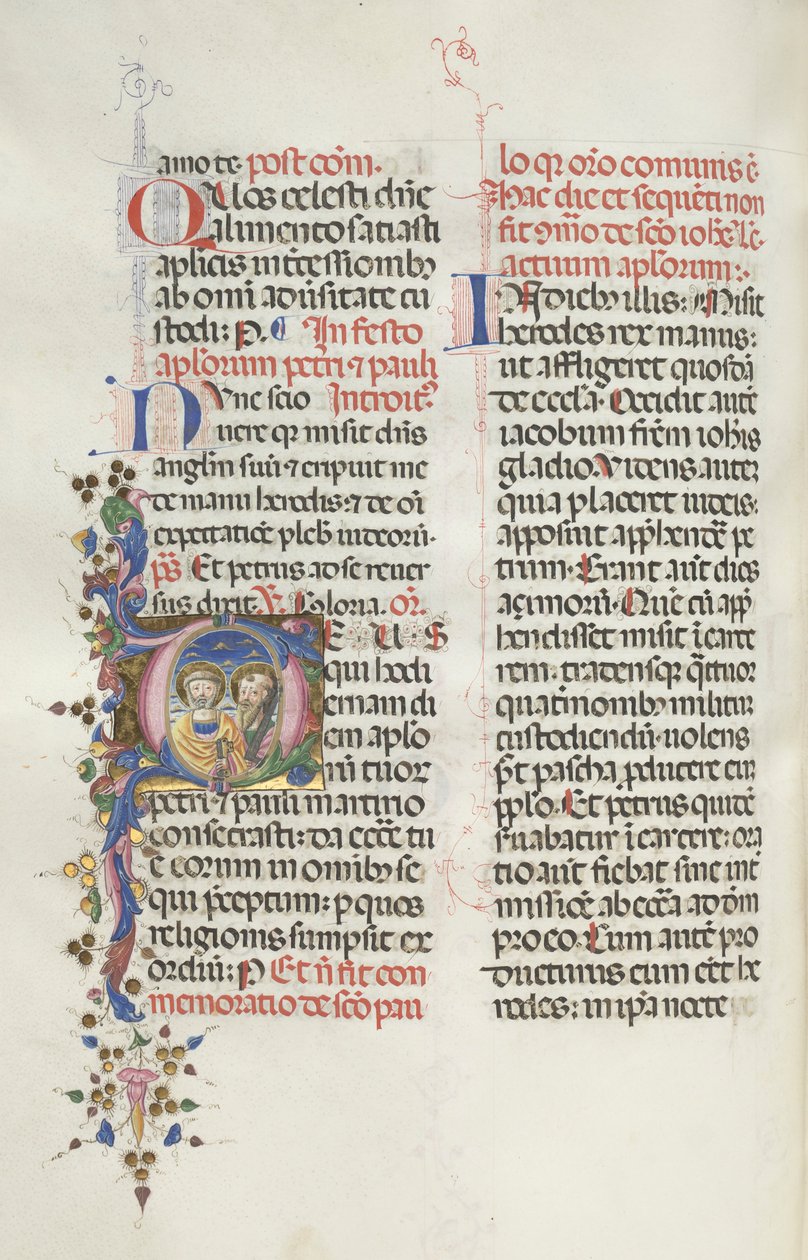 amo te. post cōm.
Quos celesti dn̄e
alimento satiasti
aplīcis intcessionibȝ
ab omī adūsitate cu
stodi: P. In festo
aplorum petri ⁊ pauli
Nunc scio Introitꝰ
uere qꝛ misit dn̄s
anglm̄ suū ⁊ eripuit me
de manu herodis: ⁊ de oī
expectatiōe pleb iudeorū.
ps̄ Et petrus ad se reuer
sus dixit. V̄. Gloria. or̄.
DEUS
qui hodi
ernam di
em aplo
rū tuoꝝ
petri ⁊ pauli martirio
consecrasti: da ecc̄e tu
e eorum in omībȝ se
qui p̄ceptum: ꝑ quos
religionis sumpsit ex
ordiū: P Et n̄ fit com
memoratio de sc̄o pau
lo qꝛ or̄o comunis ē.
Hac die et sequēti non
fit ꝯm̄o de sc̄o ioh̄e. Lc̄.
actuum aplorum:.
IN diebȝ illis: Misit
herodes rex manus:
ut affligeret quosdā
de eccl̄a. Occidit autē
iacobum frēm ioh̄is
gladio. Videns autez
quia placeret iudeis:
apposuit app̄hendēe pe
trum. Erant aūt dies
açimorū. Quē cū app̄
hendisset misit ī carce
rem. tradensqꝫ q̄ttuor
quat̄nionibȝ militū
custodiendū. uolens
p̄t pascha ꝓducere eū
pp̄lo. Et petrus quidē
s̄uabatur ī carcere: ora
tio aūt fiebat sine int̄
missiōe ab ecc̄a ad dm̄
pro eo. Cum autē pro
ducturus eum eēt he
rodes: in ip̄a nocte